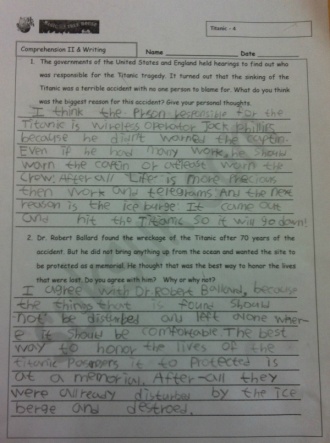 READ-IT-FREE WRITE
Titanic - 4
Comprehension II & Writing
Name
Date
1. The governments of the United States and England held hearings to find out who
was responsible for the Titanic tragedy. It turned out that the sinking of the
Titanic was a terrible accident with no one person to blame for. What do you think
was the biggest reason for this accident? Give your personal thoughts.
I think the Prson responsible for the
Titanic is wireless operator Jack Phillies
because he didn't warned the captin.
Even if he had many work, he should
worn the captin or atleast worn the
crew. After all "Life" is more Precious
then work and telegrams. And the next
reason is the ice berge. It came out
and hit the Titanic so it will go down!
2. Dr. Robert Ballard found the wreckage of the Titanic after 70 years of the
accident. But he did not bring anything up from the ocean and wanted the site to
be protected as a memorial. He thought that was the best way to honor the lives
that were lost. Do you agree with him? Why or why not?
I agree with Dr Robert Ballard, because
the things that found should
not be disturbed and left alone wher-
e it should be comfortable The best
way to honor the lives of the
titanic Passengers it to Protected is
at a memorial. After-all they
were allready disturbed by the ice
berge and destroed.